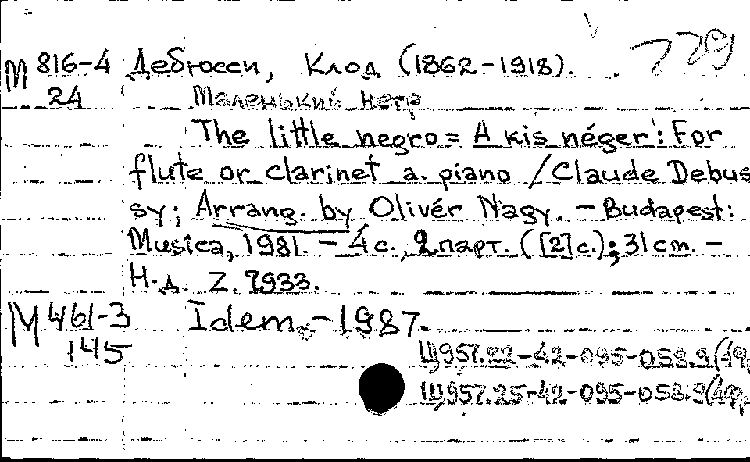 М 816-4 Дебюсси, Клод (1862-1918). 779
24 Маленький негр
The little negro = A kis néger: For
flute or clarinet a. piano / Claude Debus
sy; Arrang. by Olivér Nagy. - Budapest:
Musica, 1981. - 4 с., 2 парт. ([2] с.); 31 cm. -
Н.д. Z. 7933.
М 461-3 Idem. - 1987.
145
Щ957.22-42-095-058.9(49,
Щ957.25-42-095-058.9(49,